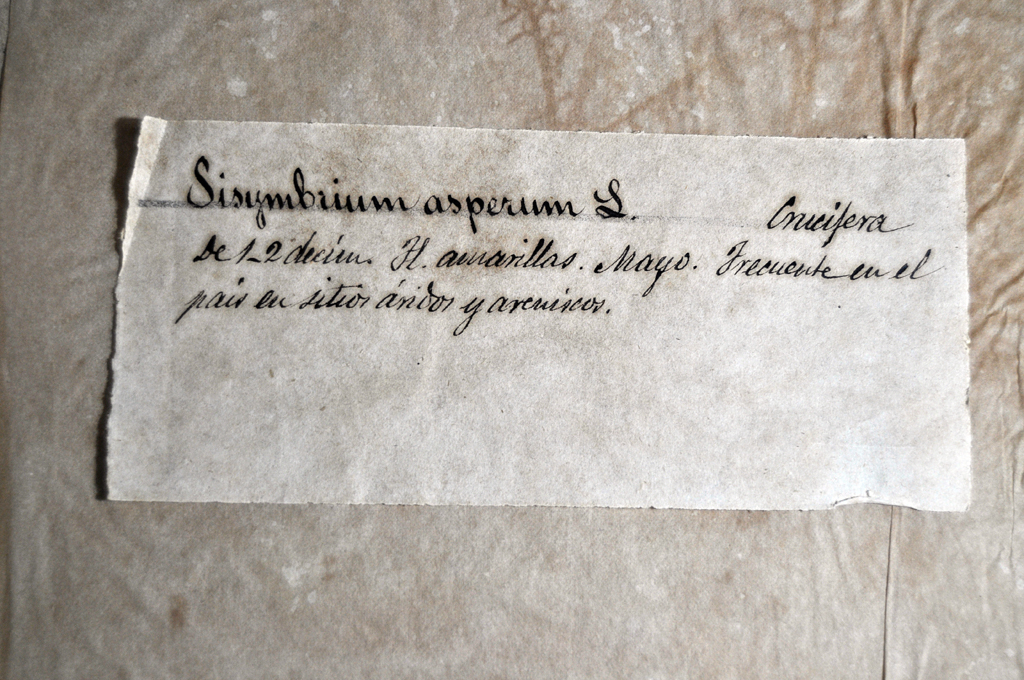 Sisymbrium asperum L. Crucifera
De 1-2 decím. Fl. amarillas. Mayo. Frecuente en el
pais en sitios áridos y areniscos.